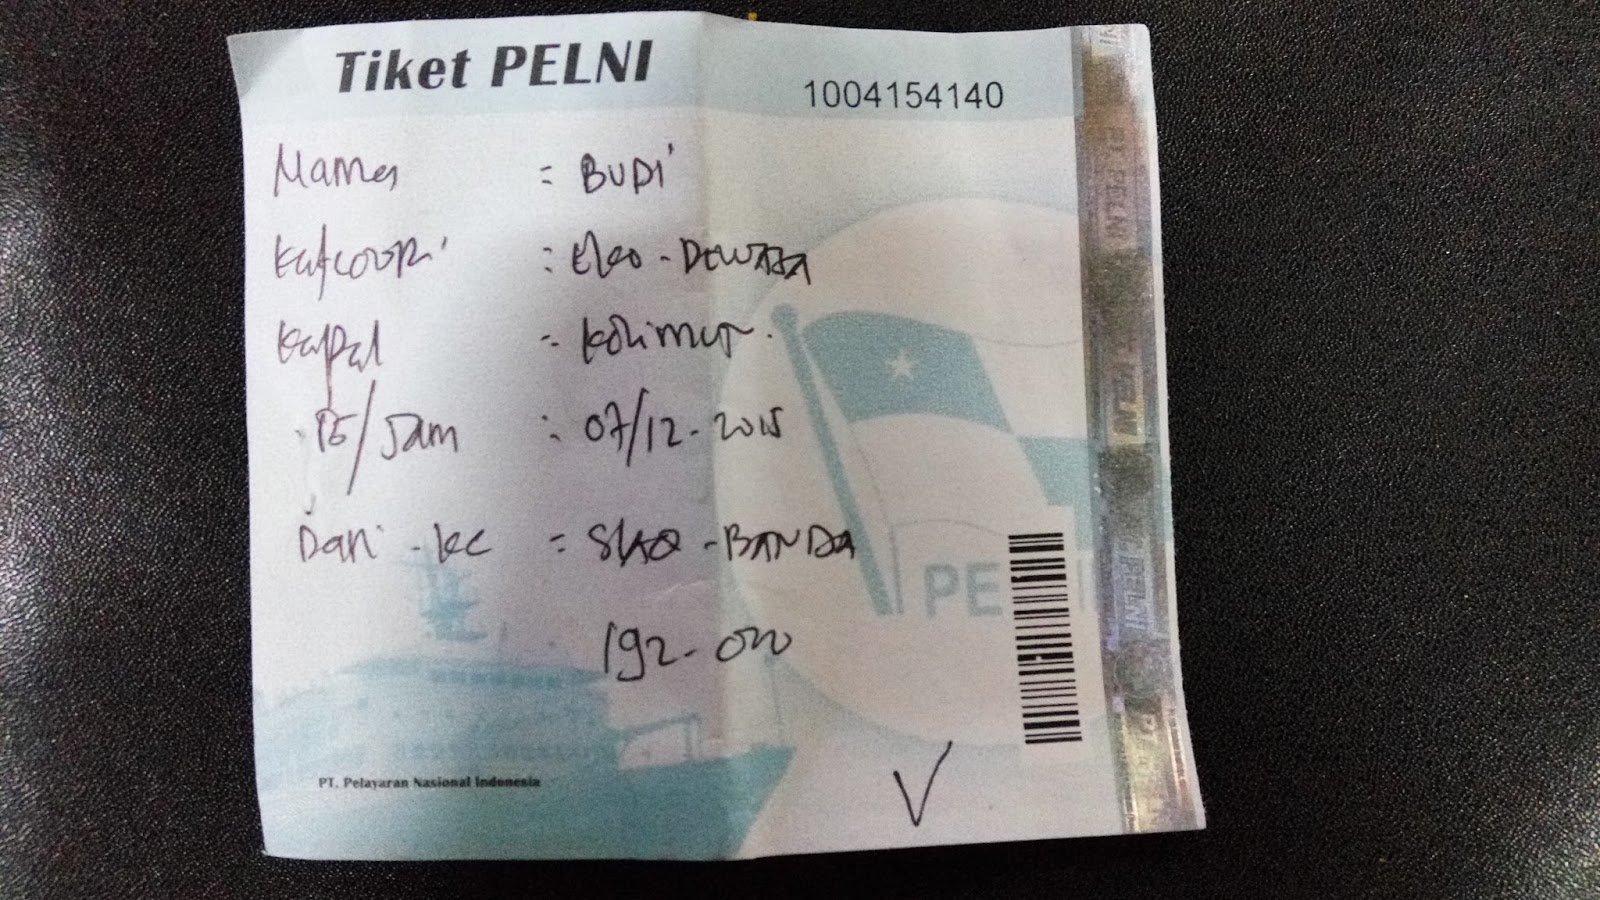 Tiket PELNI
1004154140
Nama = BUDI
Kategori : Eko - DEWASA
Kapal = Kelimutu
/ Jam : 07/12-2015
Dari - ke = - BANDA
192-000
PE
PT. Pelayaran Nasional Indonesia
V
PELNI
PELNI